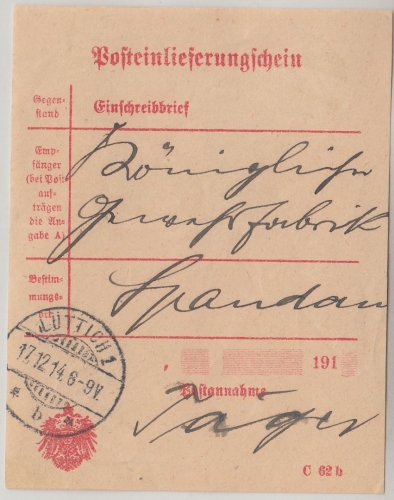 Posteinlieferungschein
Gegen-
stand
Einschreibbrief
Emp-
fänger
(bei Post-
auf-
trägen
die An-
gabe A)
Königliche
Gewehrfabrik
Bestim-
mungs-
ort
Spandau
LÜTTICH 1
17.12.14.8-9V.
* b *
, 191
Postannahme
Jäger
C 62 b